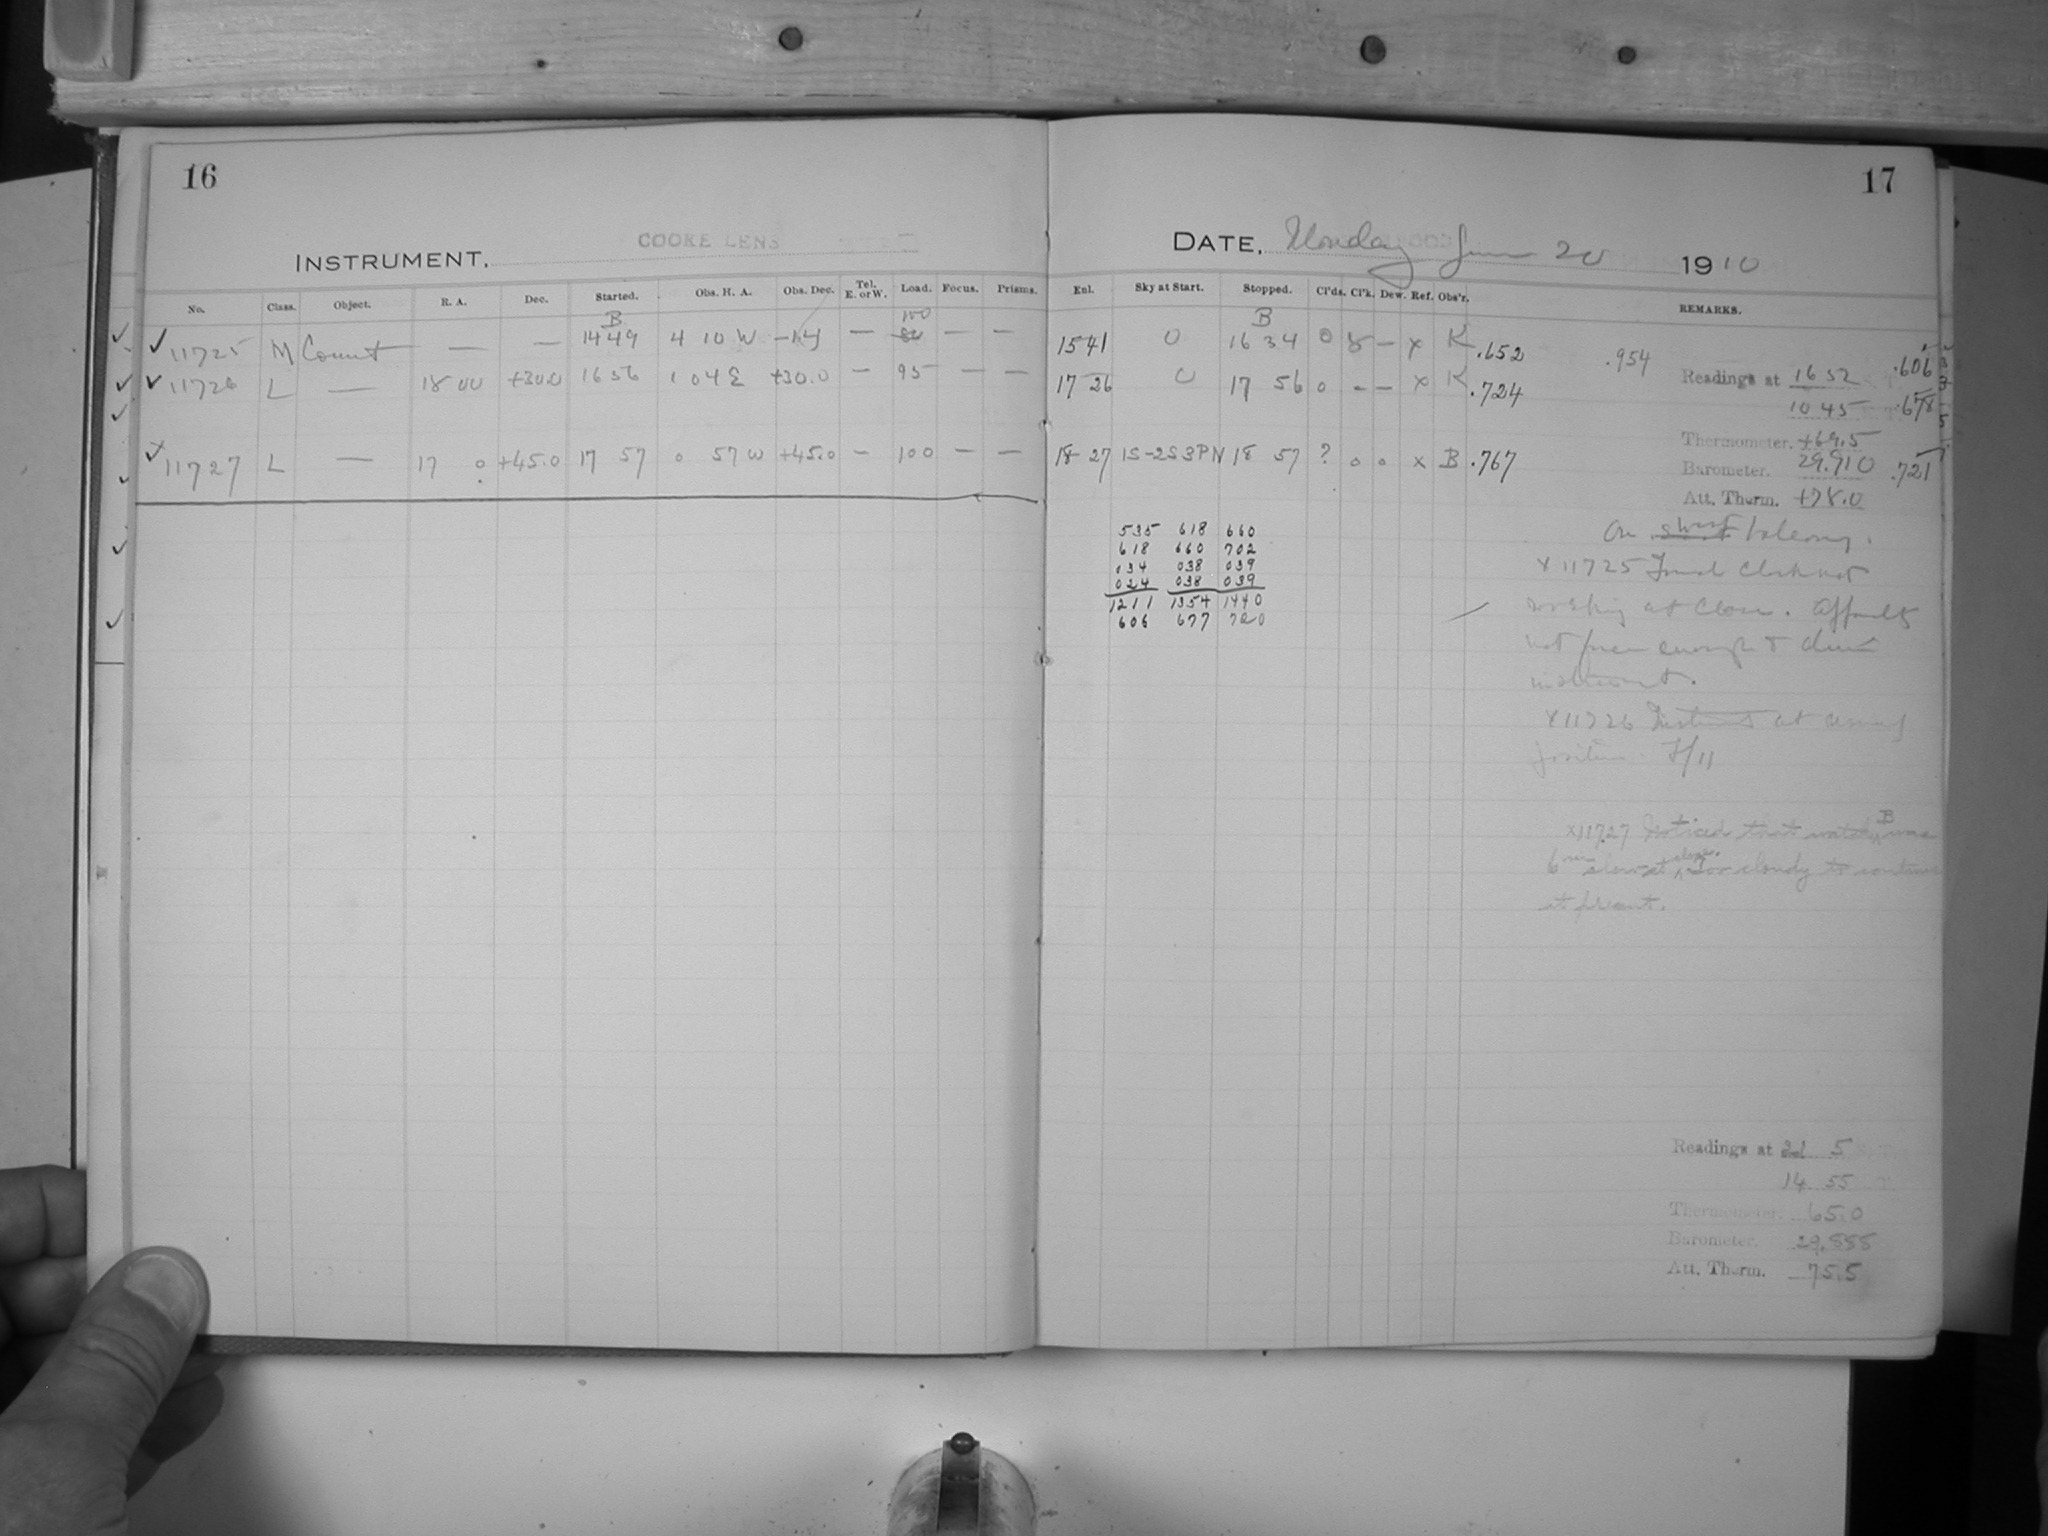 16
COOKE LENS
INSTRUMENT.
No. Class. Object. R. A. Dec. Started. Obs. H. A. Obs. Dec. Tel. E. or W. Load. Focus. Prisms.
B 100
11725 M Count — — 1449 4 10 W — — —
11726 L — 18 00 +30.0 1656 1 04 E +30.0 — 95 — —
11727 L — 17 0 +45.0 17 57 0 57 W +45.0 — 100 — —
17
DATE, Monday June 20 1910
Exl. Sky at Start. Stopped. Cl'ds. Cl'k. Dew. Ref. Obs'r. REMARKS.
B
1541 0 16 34 0 8 — x K .652 .954
Readings at 1652 .606
17 26 0 17 56 0 – – x K .724
1045 .678
Thermometer. +69.5
18 27 1S-2S3PN 18 57 ? 0 0 x B .767
Barometer. 29.910 .721
Att. Therm. +78.0
535 618 660
618 660 702
034 038 039
024 038 039
1211 1354 1440
606 677 720
On west balcony.
x 11725 Found Clock not
working at close. Apparently
not power enough to drive
instrument.
x11726 at usual
position. F/11
x11727 Noticed that watch B was
6 m slow at close. Too cloudy to continue
at present.
Readings at 21 5
14 55
Thermometer. 65.0
Barometer. 29.855
Att. Therm. 75.5